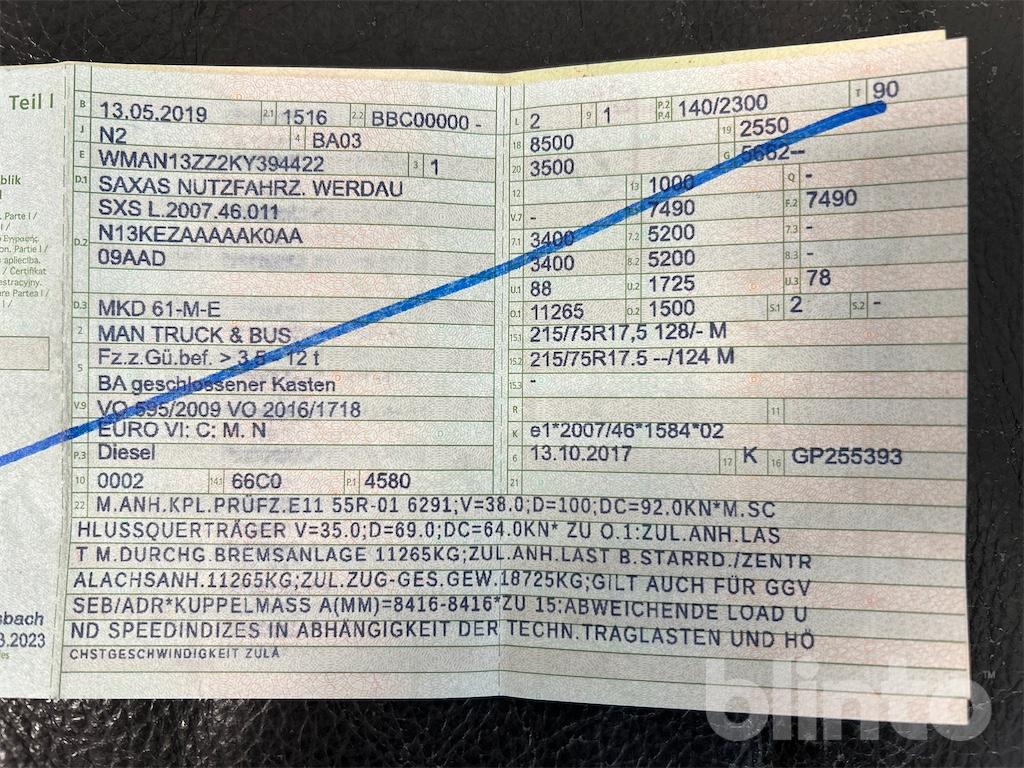 Teil I
B 13.05.2019 2.1 1516 2.2 BBC00000 -
J N2 4 BA03
E WMAN13ZZ2KY394422 3 1
D.1 SAXAS NUTZFAHRZ. WERDAU
SXS L.2007.46.011
D.2 N13KEZAAAAAK0AA
09AAD
D.3 MKD 61-M-E
2 MAN TRUCK & BUS
5 Fz.z.Gü.bef. > 3,5 - 12 t
BA geschlossener Kasten
V.9 VO 595/2009 VO 2016/1718
EURO VI: C: M. N
P.3 Diesel
10 0002 14.1 66C0 P.1 4580
L 2 9 1 P.2 P.4 140/2300 T 90
18 8500 19 2550
20 3500 G 5662--
12 13 1000 Q -
V.7 - 7490 F.2 7490
7.1 3400 7.2 5200 7.3 -
3400 8.2 5200 8.3 -
U.1 88 U.2 1725 U.3 78
O.1 11265 O.2 1500 S.1 2 S.2 -
15.1 215/75R17,5 128/- M
15.2 215/75R17.5 --/124 M
15.3 -
R 11
K e1*2007/46*1584*02
6 13.10.2017 17 K 16 GP255393
21
22 M.ANH.KPL.PRÜFZ.E11 55R-01 6291;V=38.0;D=100;DC=92.0KN*M.SC
HLUSSQUERTRÄGER V=35.0;D=69.0;DC=64.0KN* ZU O.1:ZUL.ANH.LAS
T M.DURCHG.BREMSANLAGE 11265KG;ZUL.ANH.LAST B.STARRD./ZENTR
ALACHSANH.11265KG;ZUL.ZUG-GES.GEW.18725KG;GILT AUCH FÜR GGV
SEB/ADR*KUPPELMASS A(MM)=8416-8416*ZU 15:ABWEICHENDE LOAD U
ND SPEEDINDIZES IN ABHÄNGIGKEIT DER TECHN.TRAGLASTEN UND HÖ
CHSTGESCHWINDIGKEIT ZULÄ
blik
. Parte I /
on. Partie I /
apliecība.
/ Certifikat
estracyjny.
re Partea I /
sbach
3.2023
blinto™